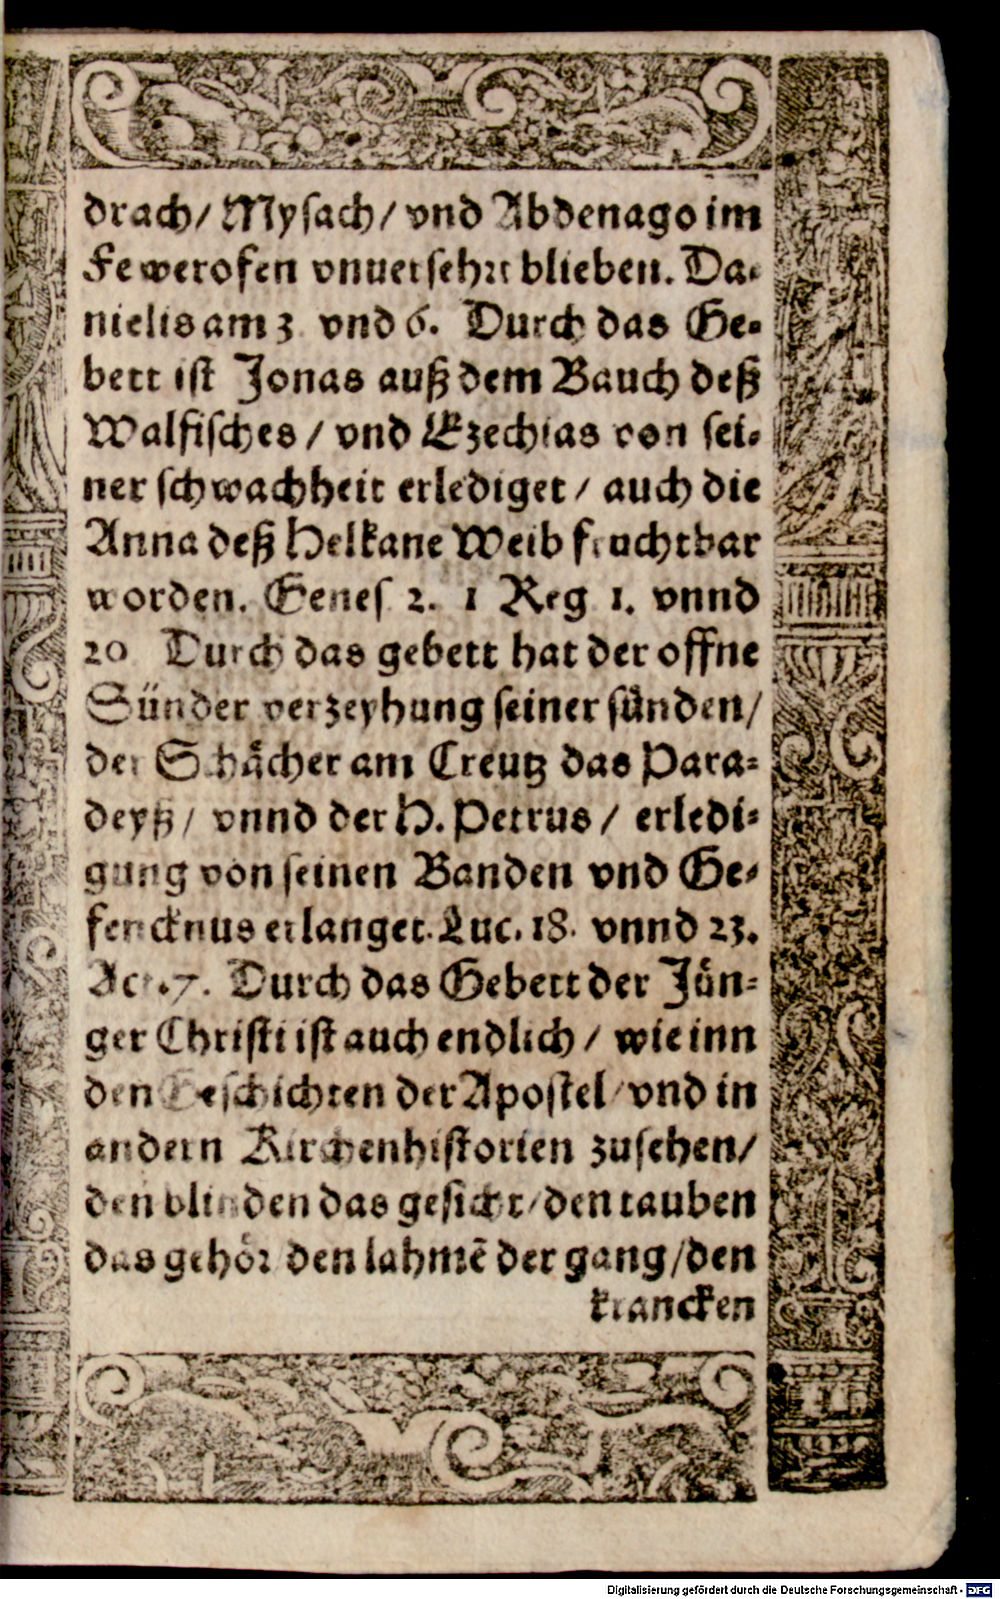 drach/ Mysach/ vnd Abdenago im
Fewerofen vnuersehrt blieben. Da-
nielis am 3 vnd 6. Durch das Ge-
bett ist Jonas auß dem Bauch deß
Walfisches / vnd Ezechias von sei-
ner schwachheit erlediget / auch die
Anna deß Helkane Weib fruchtbar
worden. Genes 2. 1 Reg 1. vnnd
20 Durch das gebett hat der offne
Sünder verzeyhung seiner sünden/
der Schächer am Creutz das Para-
deyß / vnnd der H. Petrus / erledi-
gung von seinen Banden vnd Ge-
fencknus erlanget. Luc. 18. vnnd 23.
Act. 7. Durch das Gebett der Jün-
ger Christi ist auch endlich / wie inn
den Geschichten der Apostel / vnd in
andern Kirchenhistorien zusehen/
den blinden das gesicht / den tauben
das gehör den lahmē der gang /den
krancken
Digitalisierung gefördert durch die Deutsche Forschungsgemeinschaft - DFG